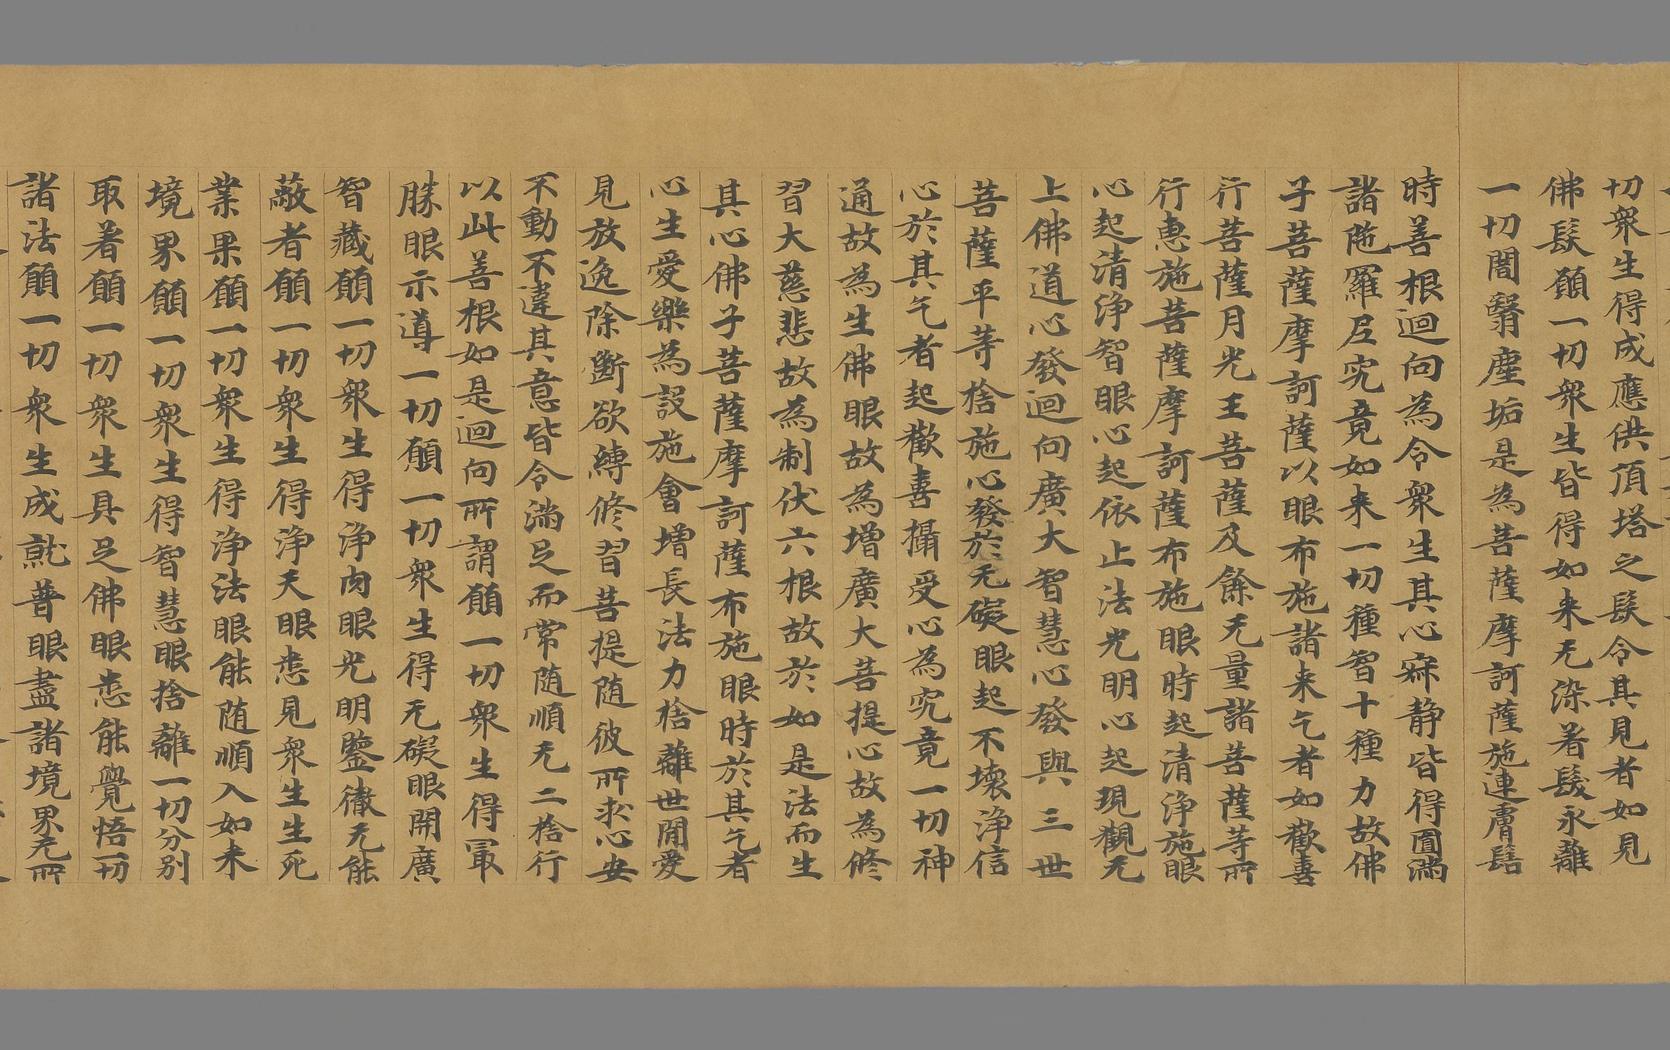 切衆生得成應供頂塔之髮令其見者如見
佛髮願一切衆生皆得如来无染著髮永離
一切闇翳塵垢是為菩薩摩訶薩施連膚髻
時善根迴向為令衆生其心寂静皆得圓滿
諸陁羅尼究竟如来一切種智十種力故佛
子菩薩摩訶薩以眼布施諸来乞者如歡喜
行菩薩月光王菩薩及餘无量諸菩薩等所
行惠施菩薩摩訶薩布施眼時起清浄施眼
心起清浄智眼心起依止法光明心起現觀无
上佛道心發迴向廣大智慧心發與三世
菩薩平等捨施心發於无礙眼起不壊浄信
心於其乞者起歡喜攝受心為究竟一切神
通故為生佛眼故為增廣大菩提心故為修
習大慈悲故為制伏六根故於如是法而生
其心佛子菩薩摩訶薩布施眼時於其乞者
心生愛樂為設施會增長法力捨離世間愛
見放逸除斷欲縛修習菩提随彼所求心安
不動不違其意皆令滿足而常随順无二捨行
以此善根如是迴向所謂願一切衆生得㝡
勝眼示導一切願一切衆生得无礙眼開廣
智藏願一切衆生得浄肉眼光明鑒徹无能
蔽者願一切衆生得浄天眼悉見衆生生死
業果願一切衆生得浄法眼能随順入如来
境界願一切衆生得智慧眼捨離一切分别
取著願一切衆生具足佛眼悉能覺悟一切
諸法願一切衆生成就普眼盡諸境界无所